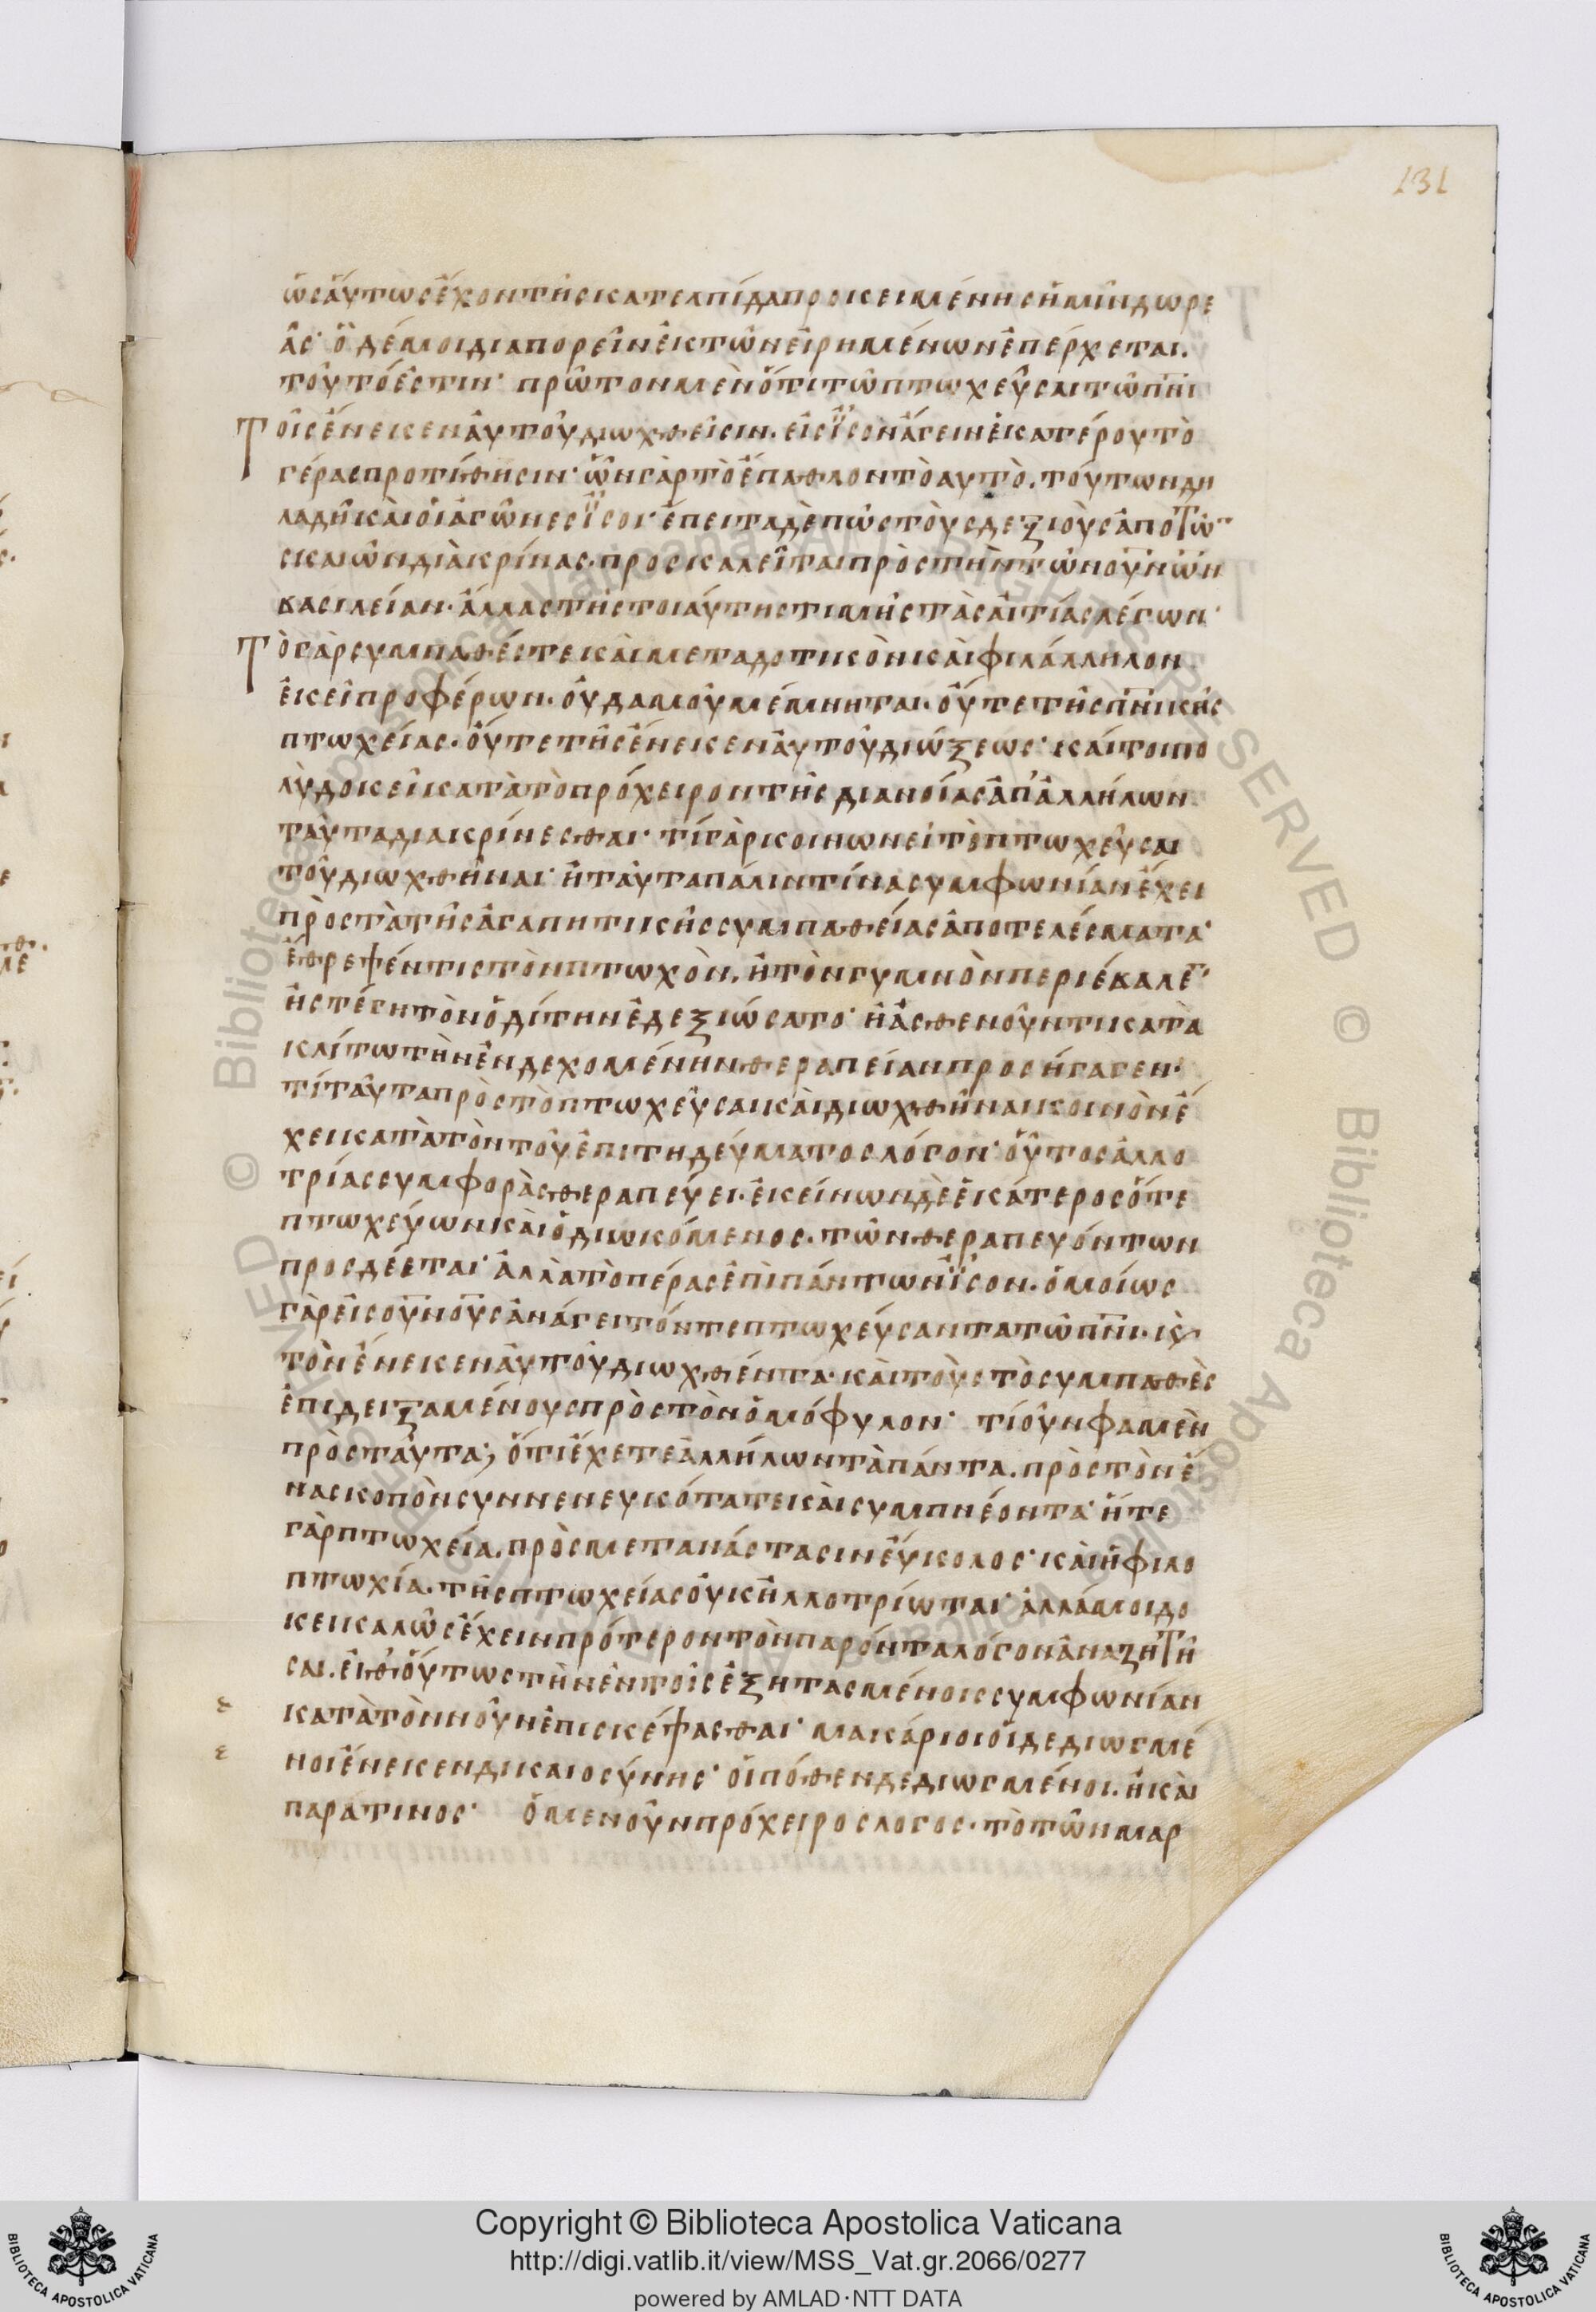 131
ὡσαύτως ἔχον τῆς κατ ελπίδα προκειμένης ἡμῖν δωρε
ᾶς· ὃ δέ μοι διαπορεῖν ἐκ τῶν εἰρημένων ἐπέρχεται.
τοῦτό ἐστιν· πρῶτον μὲν ὅτι τῶ πτωχεῦσαι τῶ πνι
Τοῖς ἕνεκεν αὐτοῦ διωχθεῖσιν. εἰς ἴσον ἄγειν ἑκατέρου τὸ
γέρας προτίθησιν· ὧν γὰρ τὸ ἔπαθλον τὸ αυτὸ. τούτων δη
λαδὴ καὶ οἱ ἀγῶνες ἴσοι· ἔπειτα δὲ πῶς τοὺς δεξιοὺς ἀπο τῶ
σκαιῶν διὰκρίνας. προσκαλεῖται πρὸς τὴν τῶν ουνῶν
βασιλείαν. ἄλλας τῆς τοιάυτης τιμῆς τὰς αἰτίας λέγων·
Τὸ γὰρ συμπαθές τε καὶ μεταδοτικὸν καὶ φιλάλληλον
ἐκεῖ προφέρων. οὐδαμοῦ μέμνηται. οὔτε τῆς πνικῆς
πτωχείας. οὔτε τῆς ἕνεκεν αὐτοῦ διώξεως· καίτοι πο
λὺ δοκεῖ κατὰ τὸ πρόχειρον τῆς διανοίας ἀπ' ἀλλήλων
ταῦτα διακρίνεσθαι· τί γὰρ κοινωνεῖ τὸ πτωχεῦσαι
τοῦ διωχθῆναι· ἢ ταῦτα πάλιν τίνα συμφωνίαν ἔχει
πρὸς τὰ τῆς ἀγαπητικῆς συμπαθείας ἀποτελέσματα·
ἔθρεψέν τις τὸν πτωχὸν. ἢ τὸν γυμνὸν περιέβαλε·
ἢ στέγη τὸν ὁδίτην ἐδεξιώσατο· ἢ ἀσθενοῦντι κατὰ
κλίτω τὴν ἐνδεχομένην θεραπείαν προσήγαγεν·
τί ταῦτα πρὸς τὸ πτωχεῦσαι καὶ διωχθῆναι κοινὸν ἔ
χει κατὰ τὸν τοῦ ἐπιτηδεύματος λόγον· οὗτος ἀλλο
τρίας συμφορὰς θεραπεύει. ἐκείνων δὲ ἑκάτερος ὅτε
πτωχεύων καὶ ὁ διωκόμενος. τῶν θεραπευόντων
προσδέεται· ἀλλὰ τὸ πέρας ἐπὶ πάντων ἴσον. ὁμοίως
γὰρ εἰς ουνους ἀνάγει τόν τε πτωχεύσαντα τῶ πνι. κς
τὸν ἕνεκεν αὐτοῦ διωχθέντα. καὶ τοὺς τὸ συμπαθὲς
ἐπιδειξαμένους πρὸς τὸν ὁμόφυλον· τί οὖν φαμὲν
πρὸς ταῦτα; ὅτι ἔχετε ἀλλήλων τὰ πάντα. πρὸς τὸν ἕ
να σκοπὸν συννενευκότα τε καὶ συμπνέοντα· ἥτε
γὰρ πτωχεία. πρὸς μετανάστασιν εὔκολος· καὶ ἡ φιλο
πτωχία. τῆς πτωχείας οὐκ ἠλλοτρίωται· ἀλλά μοι δο
κει καλῶς ἔχειν πρότερον τὸν παρόντα λόγον ἀναζητῆ
σαι. εἶθ' οὕτως τὴν ἐν τοῖς ἐξητασμένοις συμφωνίαν
κατὰ τὸν νοῦν ἐπισκέψασθαι· μακάριοι οἱ δεδιωγμέ
νοι ἕνεκεν δικαιοσύνης· οἱ πόθεν δεδιωγμένοι. ἢ καὶ
παρα τινος· ὁ μεν οὖν πρόχειρος λογος. τὸ τῶν μαρ
Copyright © Biblioteca Apostolica Vaticana
http://digi.vatlib.it/view/MSS_Vat.gr.2066/0277
powered by AMLAD·NTT DATA
BIBLIOTECA APOSTOLICA VATICANA
BIBLIOTECA APOSTOLICA VATICANA